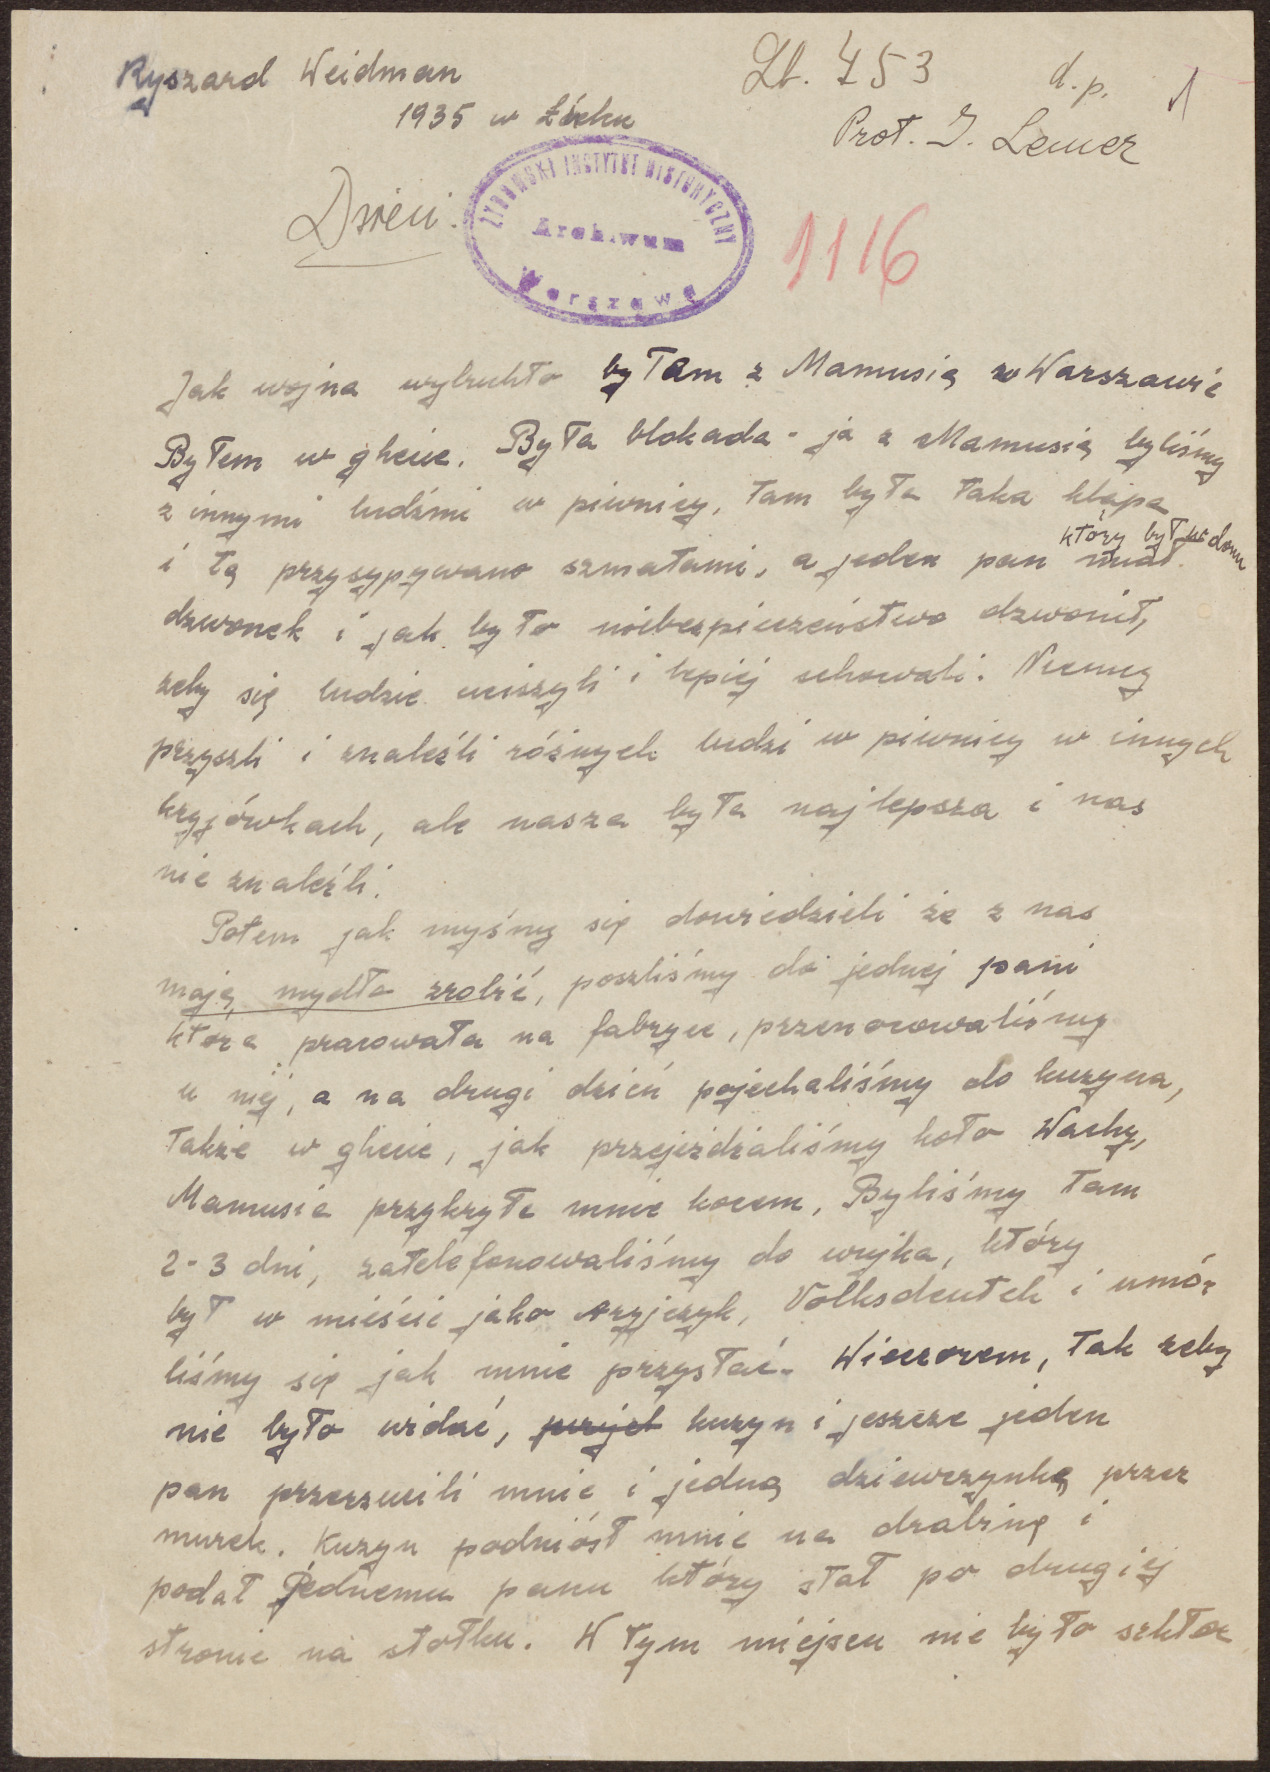 Ryszard Weidman
1935 w Łucku
Lb. 453
d.p.
1
Prot. I. Lemer
Dzieci.
ŻYDOWSKI INSTYTUT HISTORYCZNY
Archiwum
Warszawa
1116
Jak wojna wybuchła byłam z Mamusią w Warszawie
Byłem w ghecie. Była blokada - ja z Mamusią byliśmy
z innymi ludźmi w piwnicy, tam była taka klapa
i tą przysypywano szmatami, a jeden pan który był w domu miał
dzwonek i jak było niebezpieczeństwo dzwonił,
żeby się ludzie uciszyli i lepiej schowali. Niemcy
przyszli i znaleźli różnych ludzi w piwnicy w innych
kryjówkach, ale nasza była najlepsza i nas
nie znaleźli.
Potem jak myśmy się dowiedzieli że z nas
mają mydło zrobić, poszliśmy do jednej pani
która pracowała na fabryce, przenocowaliśmy
u niej, a na drugi dzień pojechaliśmy do kuzyna,
także w ghecie, jak przejeżdżaliśmy koło Wachy,
Mamusia przykryła mnie kocem, Byliśmy tam
2-3 dni, zatelefonowaliśmy do wujka, który
był w mieście jako aryjczyk, Volksdeutch i umó-
liśmy się jak mnie przysłać. Wieczorem, tak żeby
nie było widać, kuzyn i jeszcze jeden
pan przerzucili mnie i jedną dziewczynkę przez
murek. Kuzyn podniósł mnie na drabinę i
podał jednemu panu który stał po drugiej
stronie na stołku. W tym miejscu nie było szkłoe